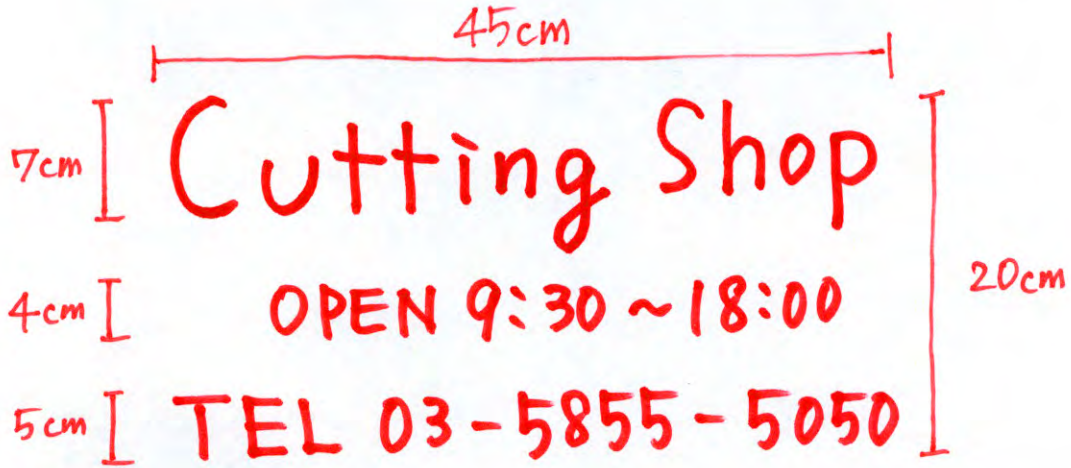 45cm
7cm Cutting Shop
20cm
4cm OPEN 9:30~18:00
5cm TEL 03-5855-5050